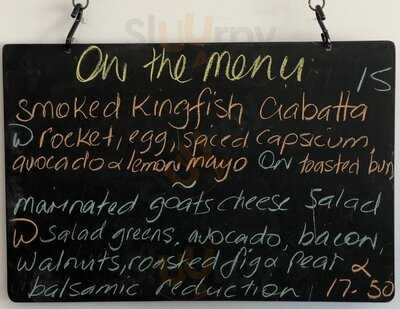 Sluurpy
On the menu
15
Smoked Kingfish Ciabatta
W rocket, egg, spiced capsicum,
avocado & lemon mayo On toasted bun
~
Marinated goats cheese Salad
W Salad greens, avocado, bacon,
walnuts, roasted fig & pear &
balsamic reduction 17.50